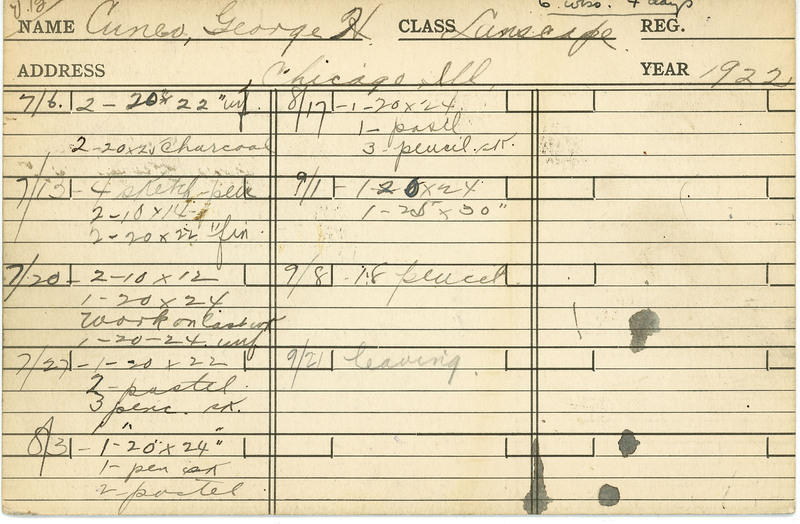 6 wks. 4 days
NAME Cuneo, George H. CLASS Lanscape REG.
ADDRESS Chicago, Ill. YEAR 1922
7/6. 2 - 20 x 22 " unf.
2 - 20 x 25 Charcoal
7/13 - 4 sketch - pen
2 - 10 x 14
2 - 20 x 22 " fin
7/20 - 2 - 10 x 12
1 - 20 x 24
work on last wk
1 - 20 - 24. unf
7/27 - 1 - 20 x 22
2 - pastel.
3 penc. sk.
8/3 - 1 - 20 x 24 "
1 - pen sk
2 - pastel
8/17 - 1 - 20 x 24.
1 - pastl
3 - pencil. sk.
9/1 - 1 - 20 x 24
1 - 25 x 30"
9/8 - 18 pencil
9/21 leaving.